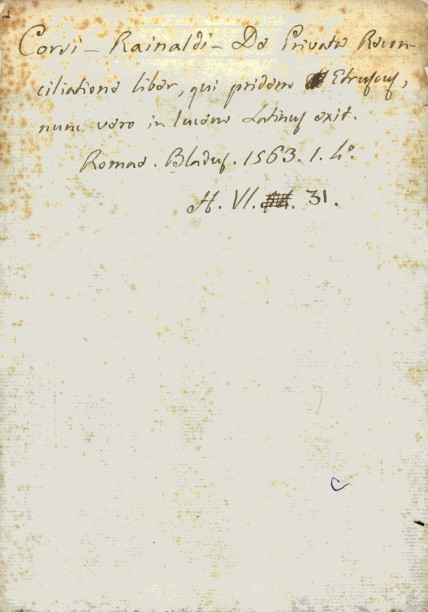 Corsi – Rainaldi – De Privata Recon-
ciliatione liber, qui pridem Etruscus,
nunc vero in lucem Latinus exit.
Romae. Bladus. 1563. 1. 4º
H. VI. 31.